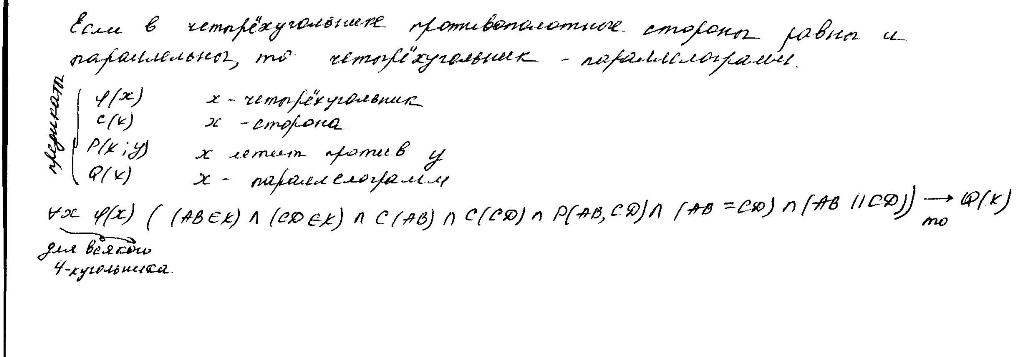 Если в четырёхугольнике противоположные стороны равны и
параллельны, то четырёхугольник - параллелограмм.
предикаты
φ(x) x - четырёхугольник
C(x) x - сторона
P(x; y) x лежит против y
Q(x) x - параллелограмм
∀x φ(x) ( (AB∈x) ∩ (CD∈x) ∩ C(AB) ∩ C(CD) ∩ P(AB, CD) ∩ (AB = CD) ∩ (AB || CD)) → Q(x)
то
для всякого
4-хугольника.